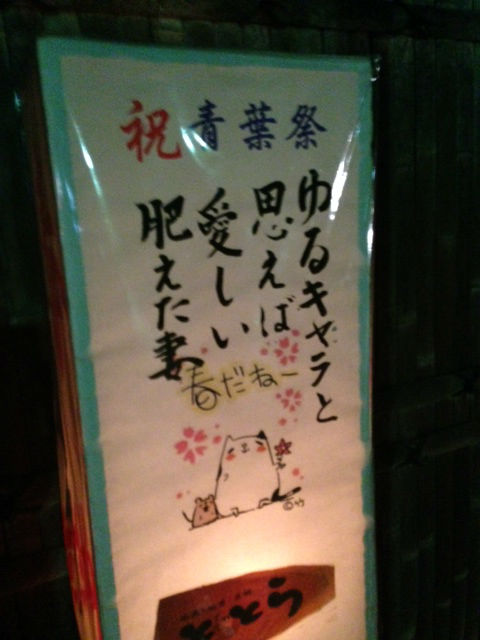 祝青葉祭
ゆるキャラと
思えば
愛しい
肥えた妻
春だねー